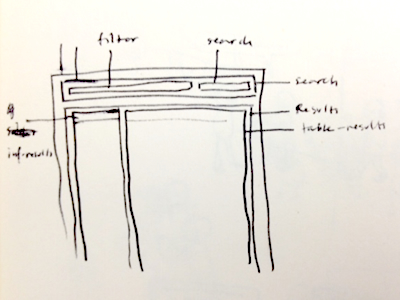 filter
search
search
Results
table-results
inf-results